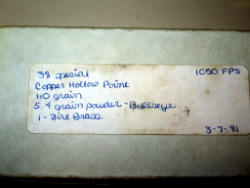 38 special 1050 FPS
Copper Hollow Point
110 grain
5.4 grain powder - Bullseye
1 - Fire Brass
3-7-81